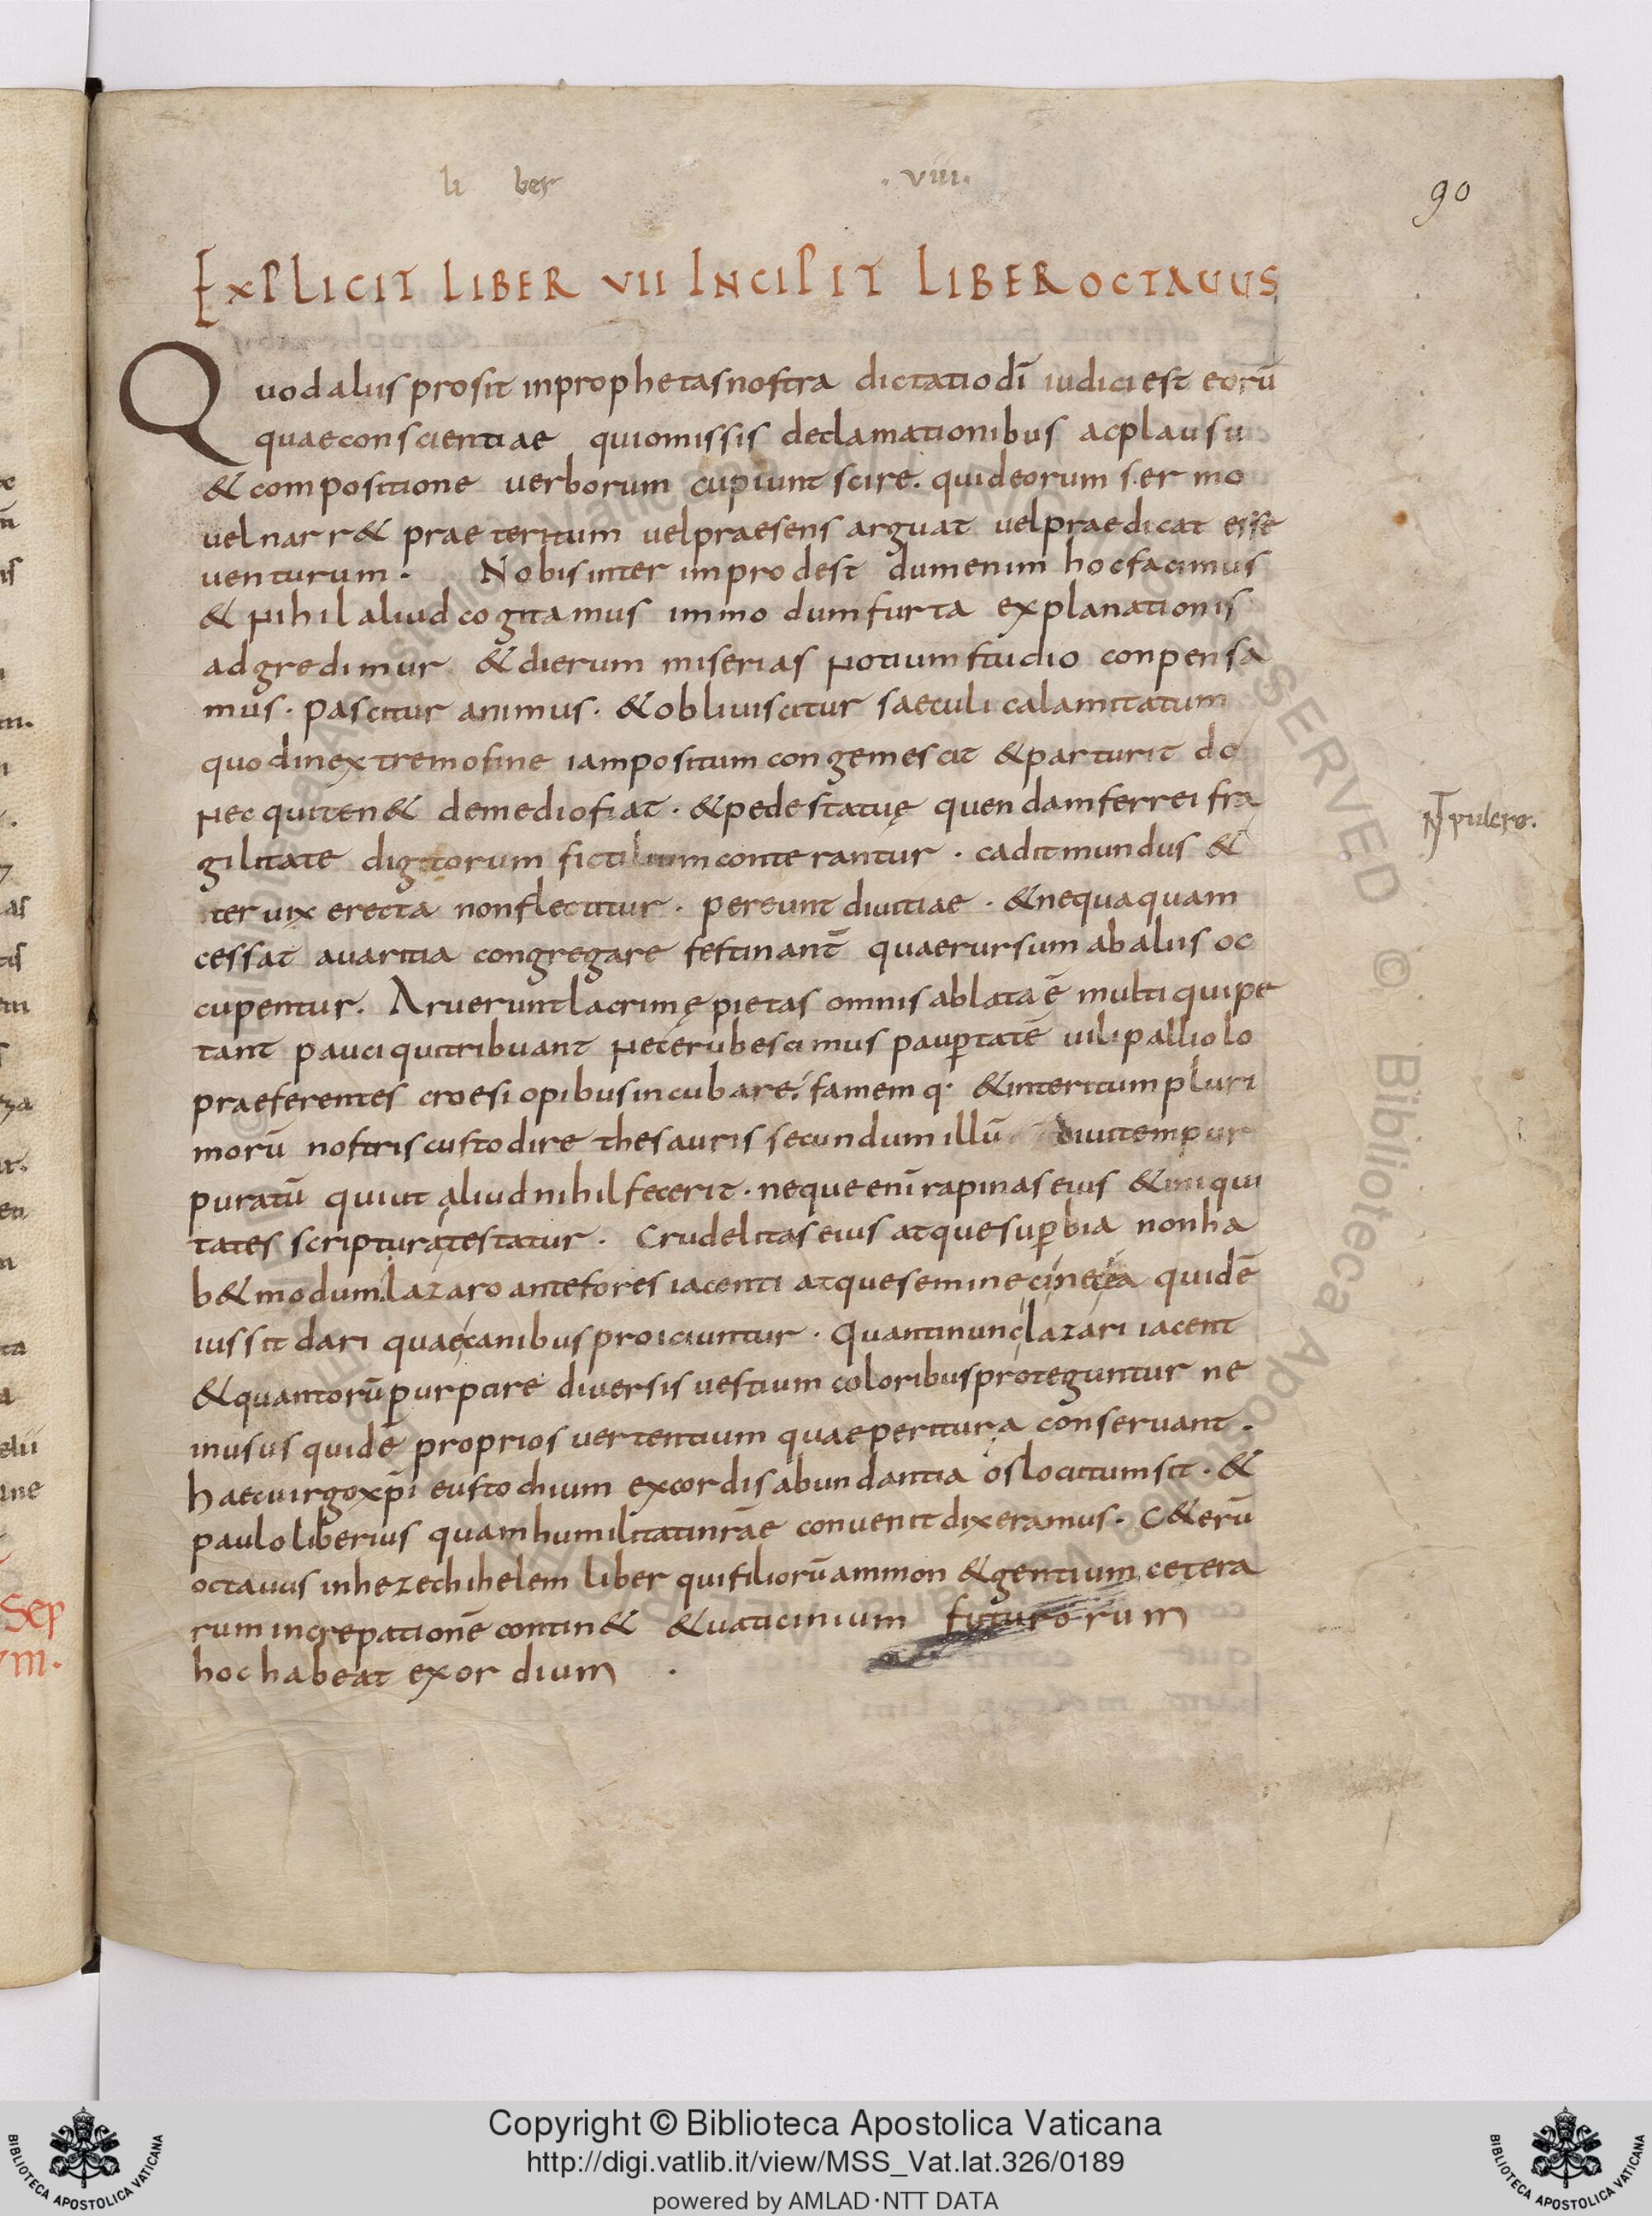 li ber . viii.
90
EXPLICIT LIBER VII INCIPIT LIBER OCTAVUS
Quod aliis prosit in prophetas nostra dictatio dī iudici est eorū
quae conscientiae qui omissis declamationibus ac plausu
& compositione uerborum cupiunt scire. quid eorum sermo
uel narr& praeteritum uel praesens arguat uel praedicat esse
uenturum. Nobis interim prodest dum enim hoc facimus
& nihil aliud cogitamus immo dum furta explanationis
adgredimur & dierum miserias noctium studio conpensa
mus. pascitur animus. & obliuiscitur saeculi calamitatum
quod in extremo fine iam positum congemescit & parturit do
nec qui ten& de medio fiat. & pede statuę quendam ferrei fra
gilitate digitorum fictilium conterantur. cadit mundus &
ceruix erecta non flectitur. pereunt diuitiae. & nequaquam
cessat auaritia congregare festinant̄ quae rursum ab aliis oc
cupentur. Aruerunt lacrimę pietas omnis ablata ē multi qui pe
tant pauci qui tribuant nec erubescimus paup̄tatē uili palliolo
praeferentes croesi opibus incubare. famemq· & interitum pluri
morū nostris custodire thesauris secundum illū diuitem pur
puratū qui ut aliud nihil fecerit. neque enī rapinas eius & iniqui
tates scriptura testatur. Crudelitas eius atque sup̄bia non ha
b& modum. lazaro ante fores iacenti atque semineci nec ea quidē
iussit dari quae canibus proiciuntur. Quanti nunc lazari iacent
& quantorū purpurę diuersis uestium coloribus proteguntur ne
in usus quidē proprios uertentium quae peritura conseruant.
haec uirgo xp̄i eustochium ex cordis abundantia os locutum sit. &
paulo liberius quam humilitati nr̄ae conuenit dixeramus. C&erū
octauus in hezechihelem liber qui filiorū ammon & gentium cetera
rum increpationē contin& & uaticinium futurorum
hoc habeat exordium .
pulcre.
Copyright © Biblioteca Apostolica Vaticana
http://digi.vatlib.it/view/MSS_Vat.lat.326/0189
powered by AMLAD·NTT DATA
BIBLIOTECA APOSTOLICA VATICANA
BIBLIOTECA APOSTOLICA VATICANA